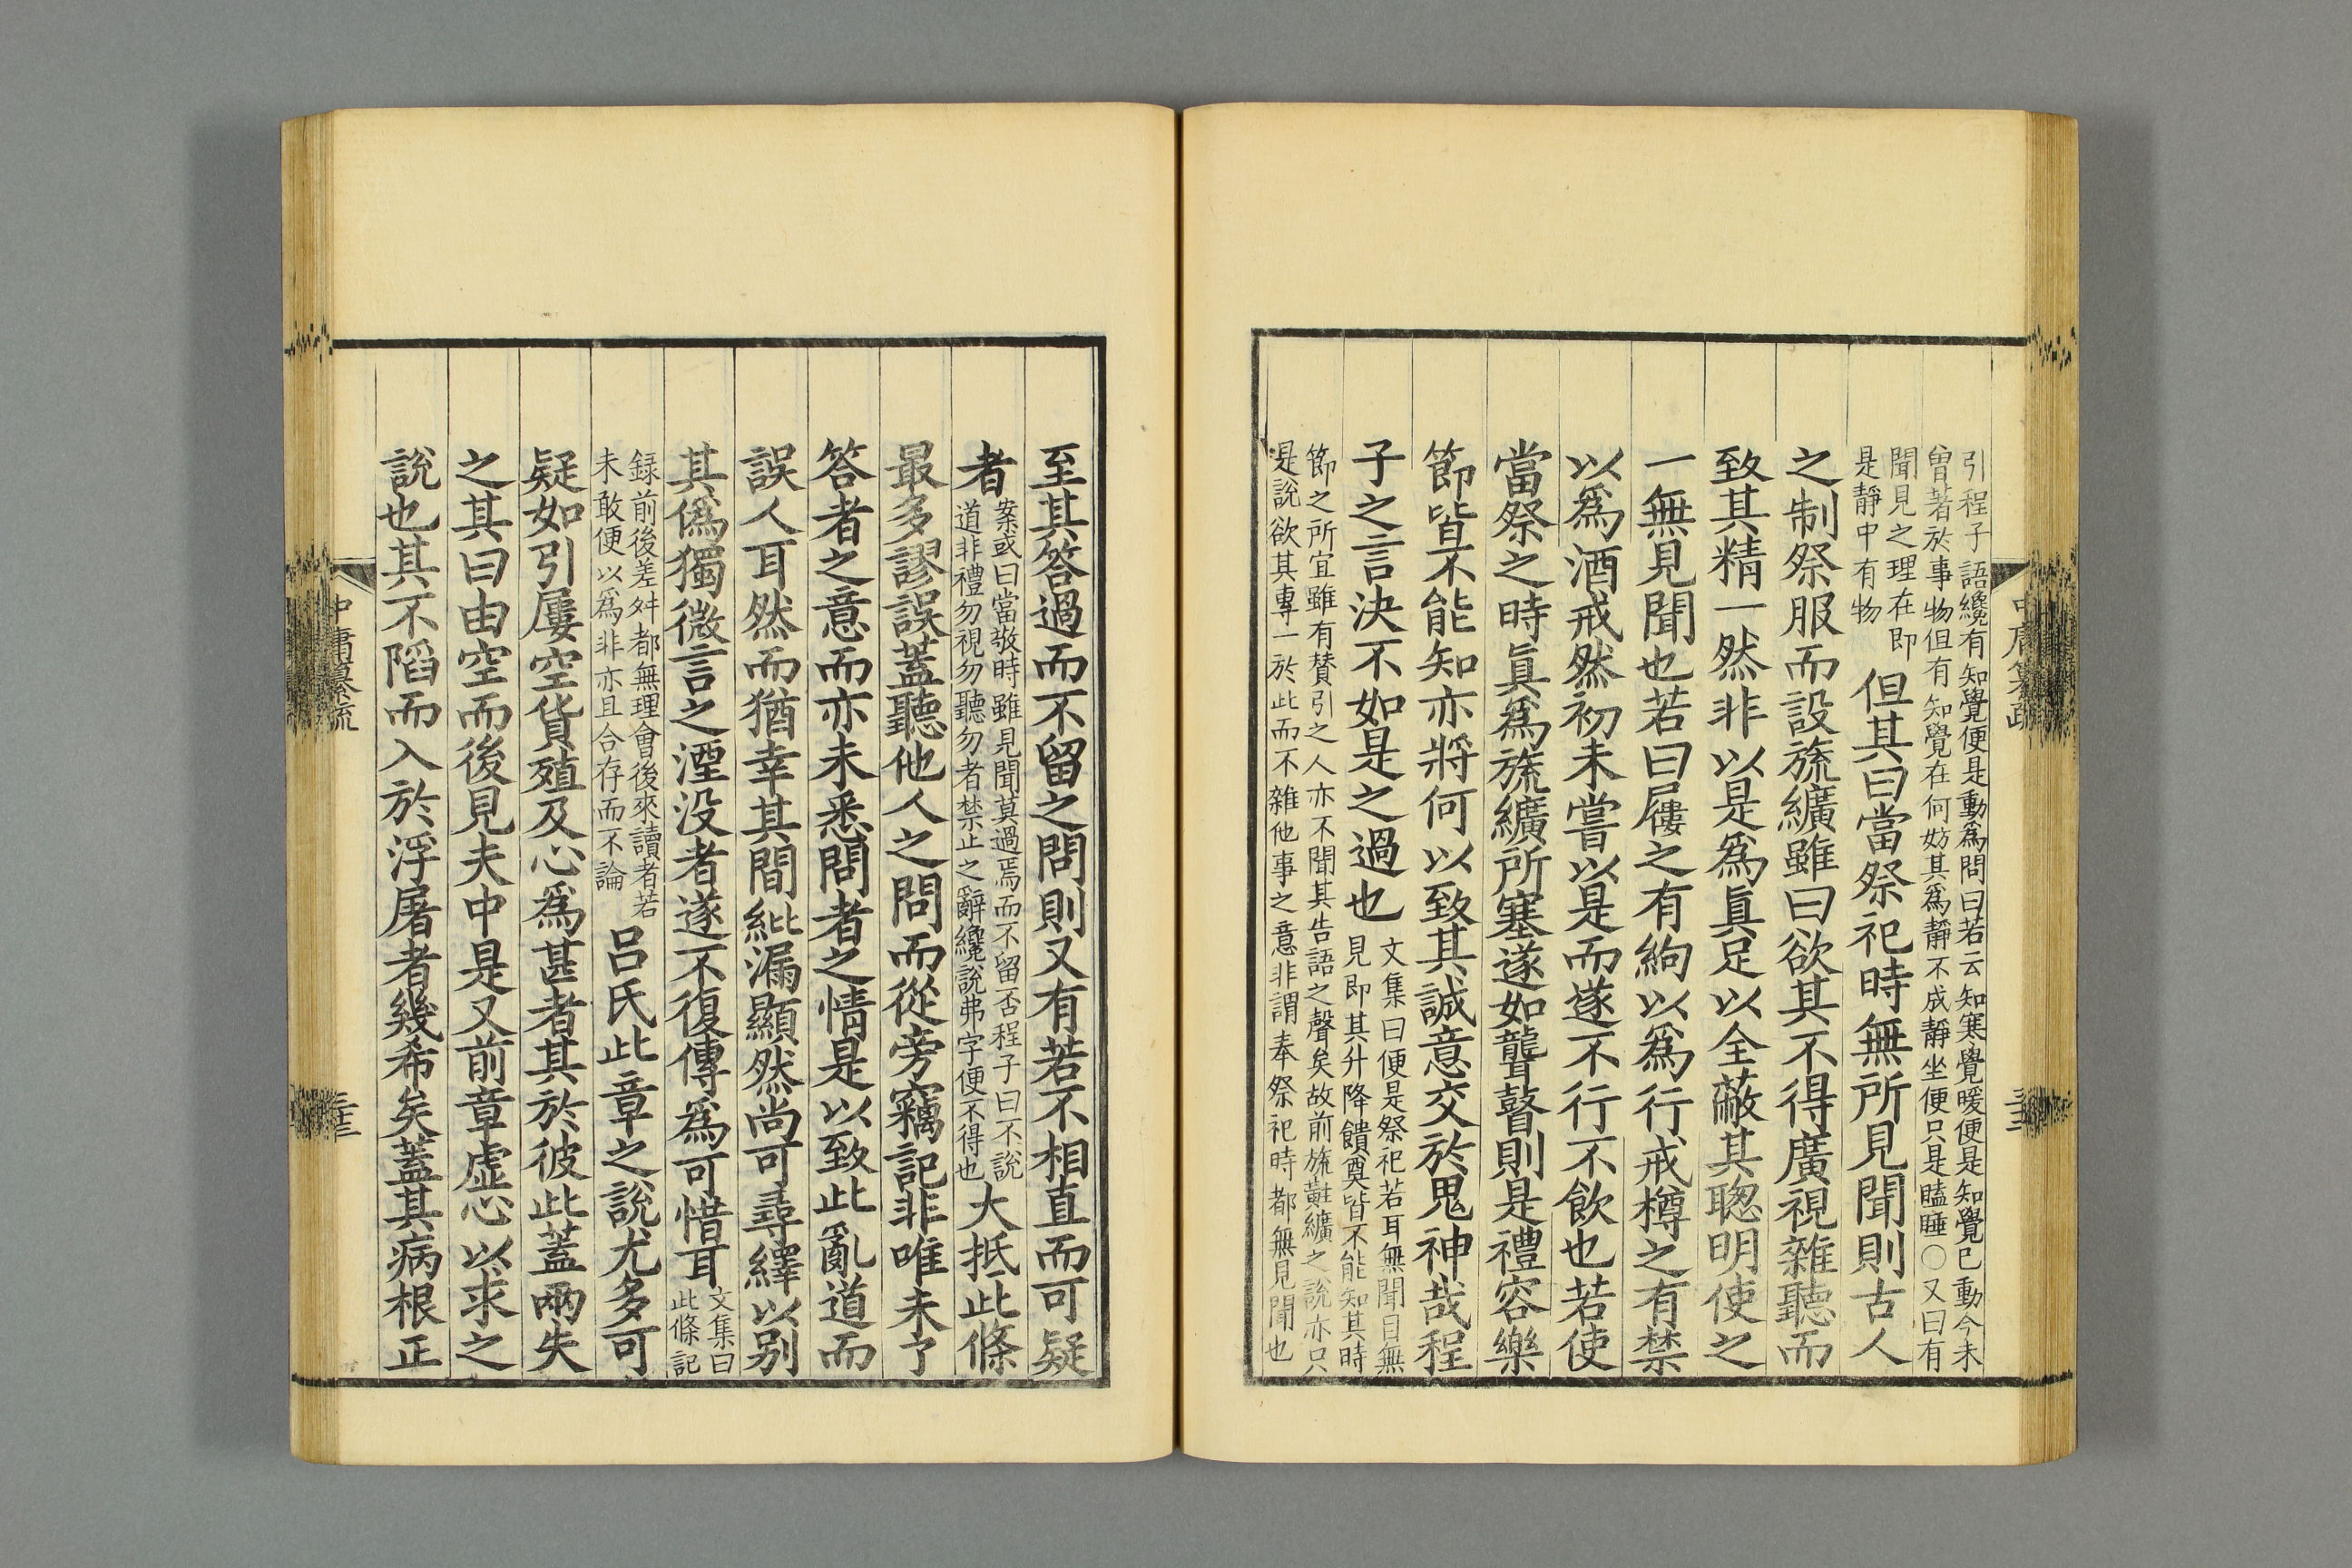 引程子語纔有知覺便是動爲問曰若云知寒覺暖便是知覺已動今未
曾著於事物但有知覺在何妨其爲靜不成靜坐便只是瞌睡○又曰有
聞見之理在即
是靜中有物
但其曰當祭祀時無所見聞則古人
之制祭服而設旒纊雖曰欲其不得廣視雜聽而
致其精一然非以是爲眞足以全蔽其聰明使之
一無見聞也若曰屨之有絇以爲行戒樽之有禁
以爲酒戒然初未嘗以是而遂不行不飲也若使
當祭之時眞爲旒纊所塞遂如聾瞽則是禮容樂
節皆不能知亦將何以致其誠意交於鬼神哉程
子之言決不如是之過也
文集曰便是祭祀若耳無聞目無
見即其升降饋奠皆不能知其時
節之所宜雖有贊引之人亦不聞其告語之聲矣故前旒黈纊之說亦只
是說欲其專一於此而不雜他事之意非謂奉祭祀時都無見聞也
中庸纂疏
三十二
至其答過而不留之問則又有若不相直而可疑
者
案或曰當敬時雖見聞莫過焉而不留否程子曰不說
道非禮勿視勿聽勿者禁止之辭纔說弗字便不得也
大抵此條
最多謬誤蓋聽他人之問而從旁竊記非唯未了
答者之意而亦未悉問者之情是以致此亂道而
誤人耳然而猶幸其間紕漏顯然尚可尋繹以别
其僞獨微言之湮没者遂不復傳爲可惜耳
文集曰
此條記
録前後差舛都無理會後來讀者若
未敢便以爲非亦且合存而不論
呂氏此章之說尤多可
疑如引屢空貨殖及心爲甚者其於彼此蓋兩失
之其曰由空而後見夫中是又前章虚心以求之
說也其不陷而入於浮屠者幾希矣蓋其病根正
中庸纂疏
三十三